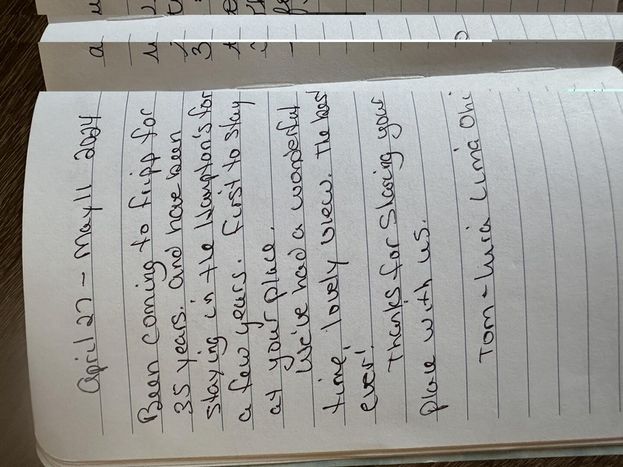 April 27 - May 11 2024
Been coming to Fripp for
35 years. and have been
staying in the Hampton's for
a few years. First to stay
at your place.
We've had a wonderful
time, lovely view. The best
ever!
Thanks for sharing your
place with us.
Tom - Lima Ohi